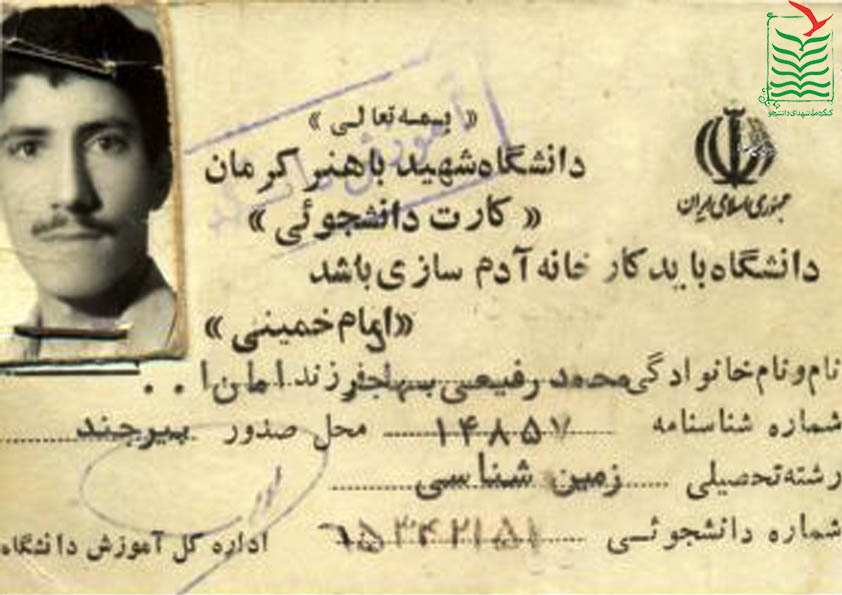 کنگره ملی شهدای دانشجو
« بسمه تعالی »
دانشگاه شهید باهنر کرمان
« کارت دانشجوئی »
جمهوری اسلامی ایران
دانشگاه باید کارخانه آدم سازی باشد
«امام خمینی»
نام و نام خانوادگی محمد رفیعی فرزند امان ا . .
شماره شناسنامه ۱۴۸۵۷ محل صدور بیرجند
رشته تحصیلی زمین شناسی
شماره دانشجوئی ۶۵۳۴۲۱۵۱
اداره کل آموزش دانشگاه